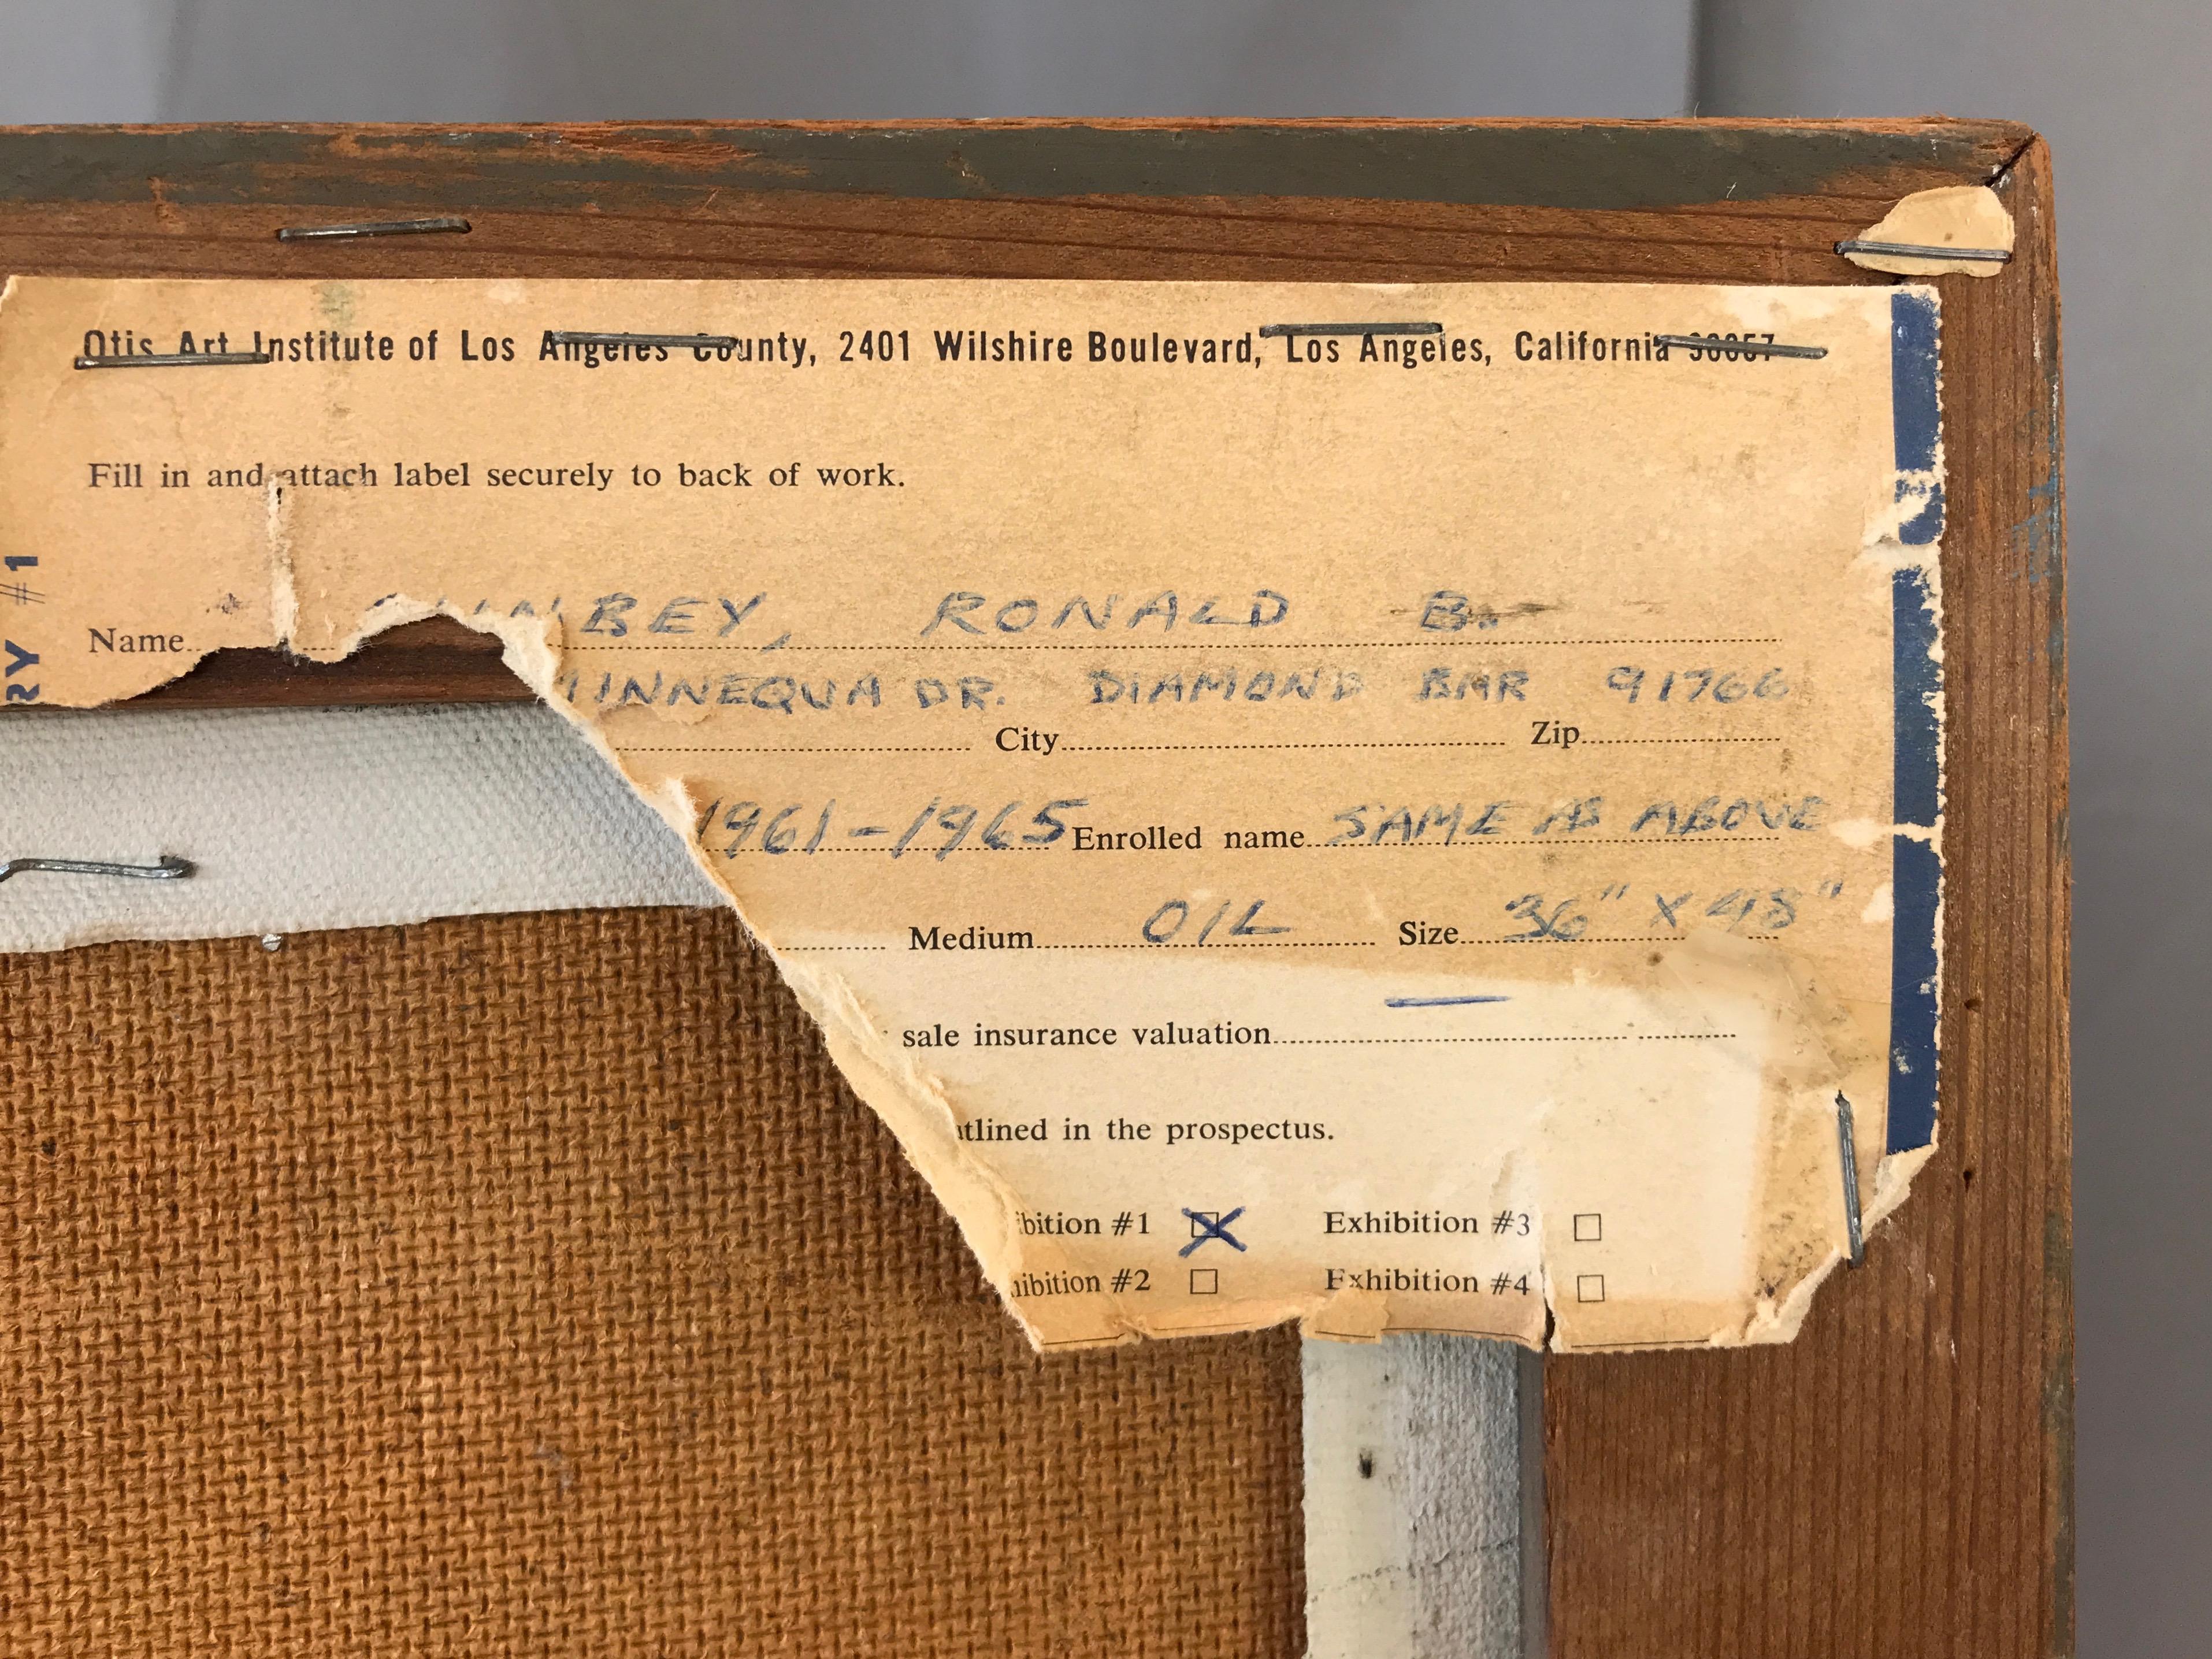 Otis Art Institute of Los Angeles County, 2401 Wilshire Boulevard, Los Angeles, California 90057
Fill in and attach label securely to back of work.
RY #1
Name BEY, RONALD B.
INNEQUA DR. DIAMOND BAR 91766
City Zip
1961-1965 Enrolled name SAME AS ABOVE
Medium OIL Size 36" X 48"
sale insurance valuation
tlined in the prospectus.
bition #1 Exhibition #3
hibition #2 Exhibition #4